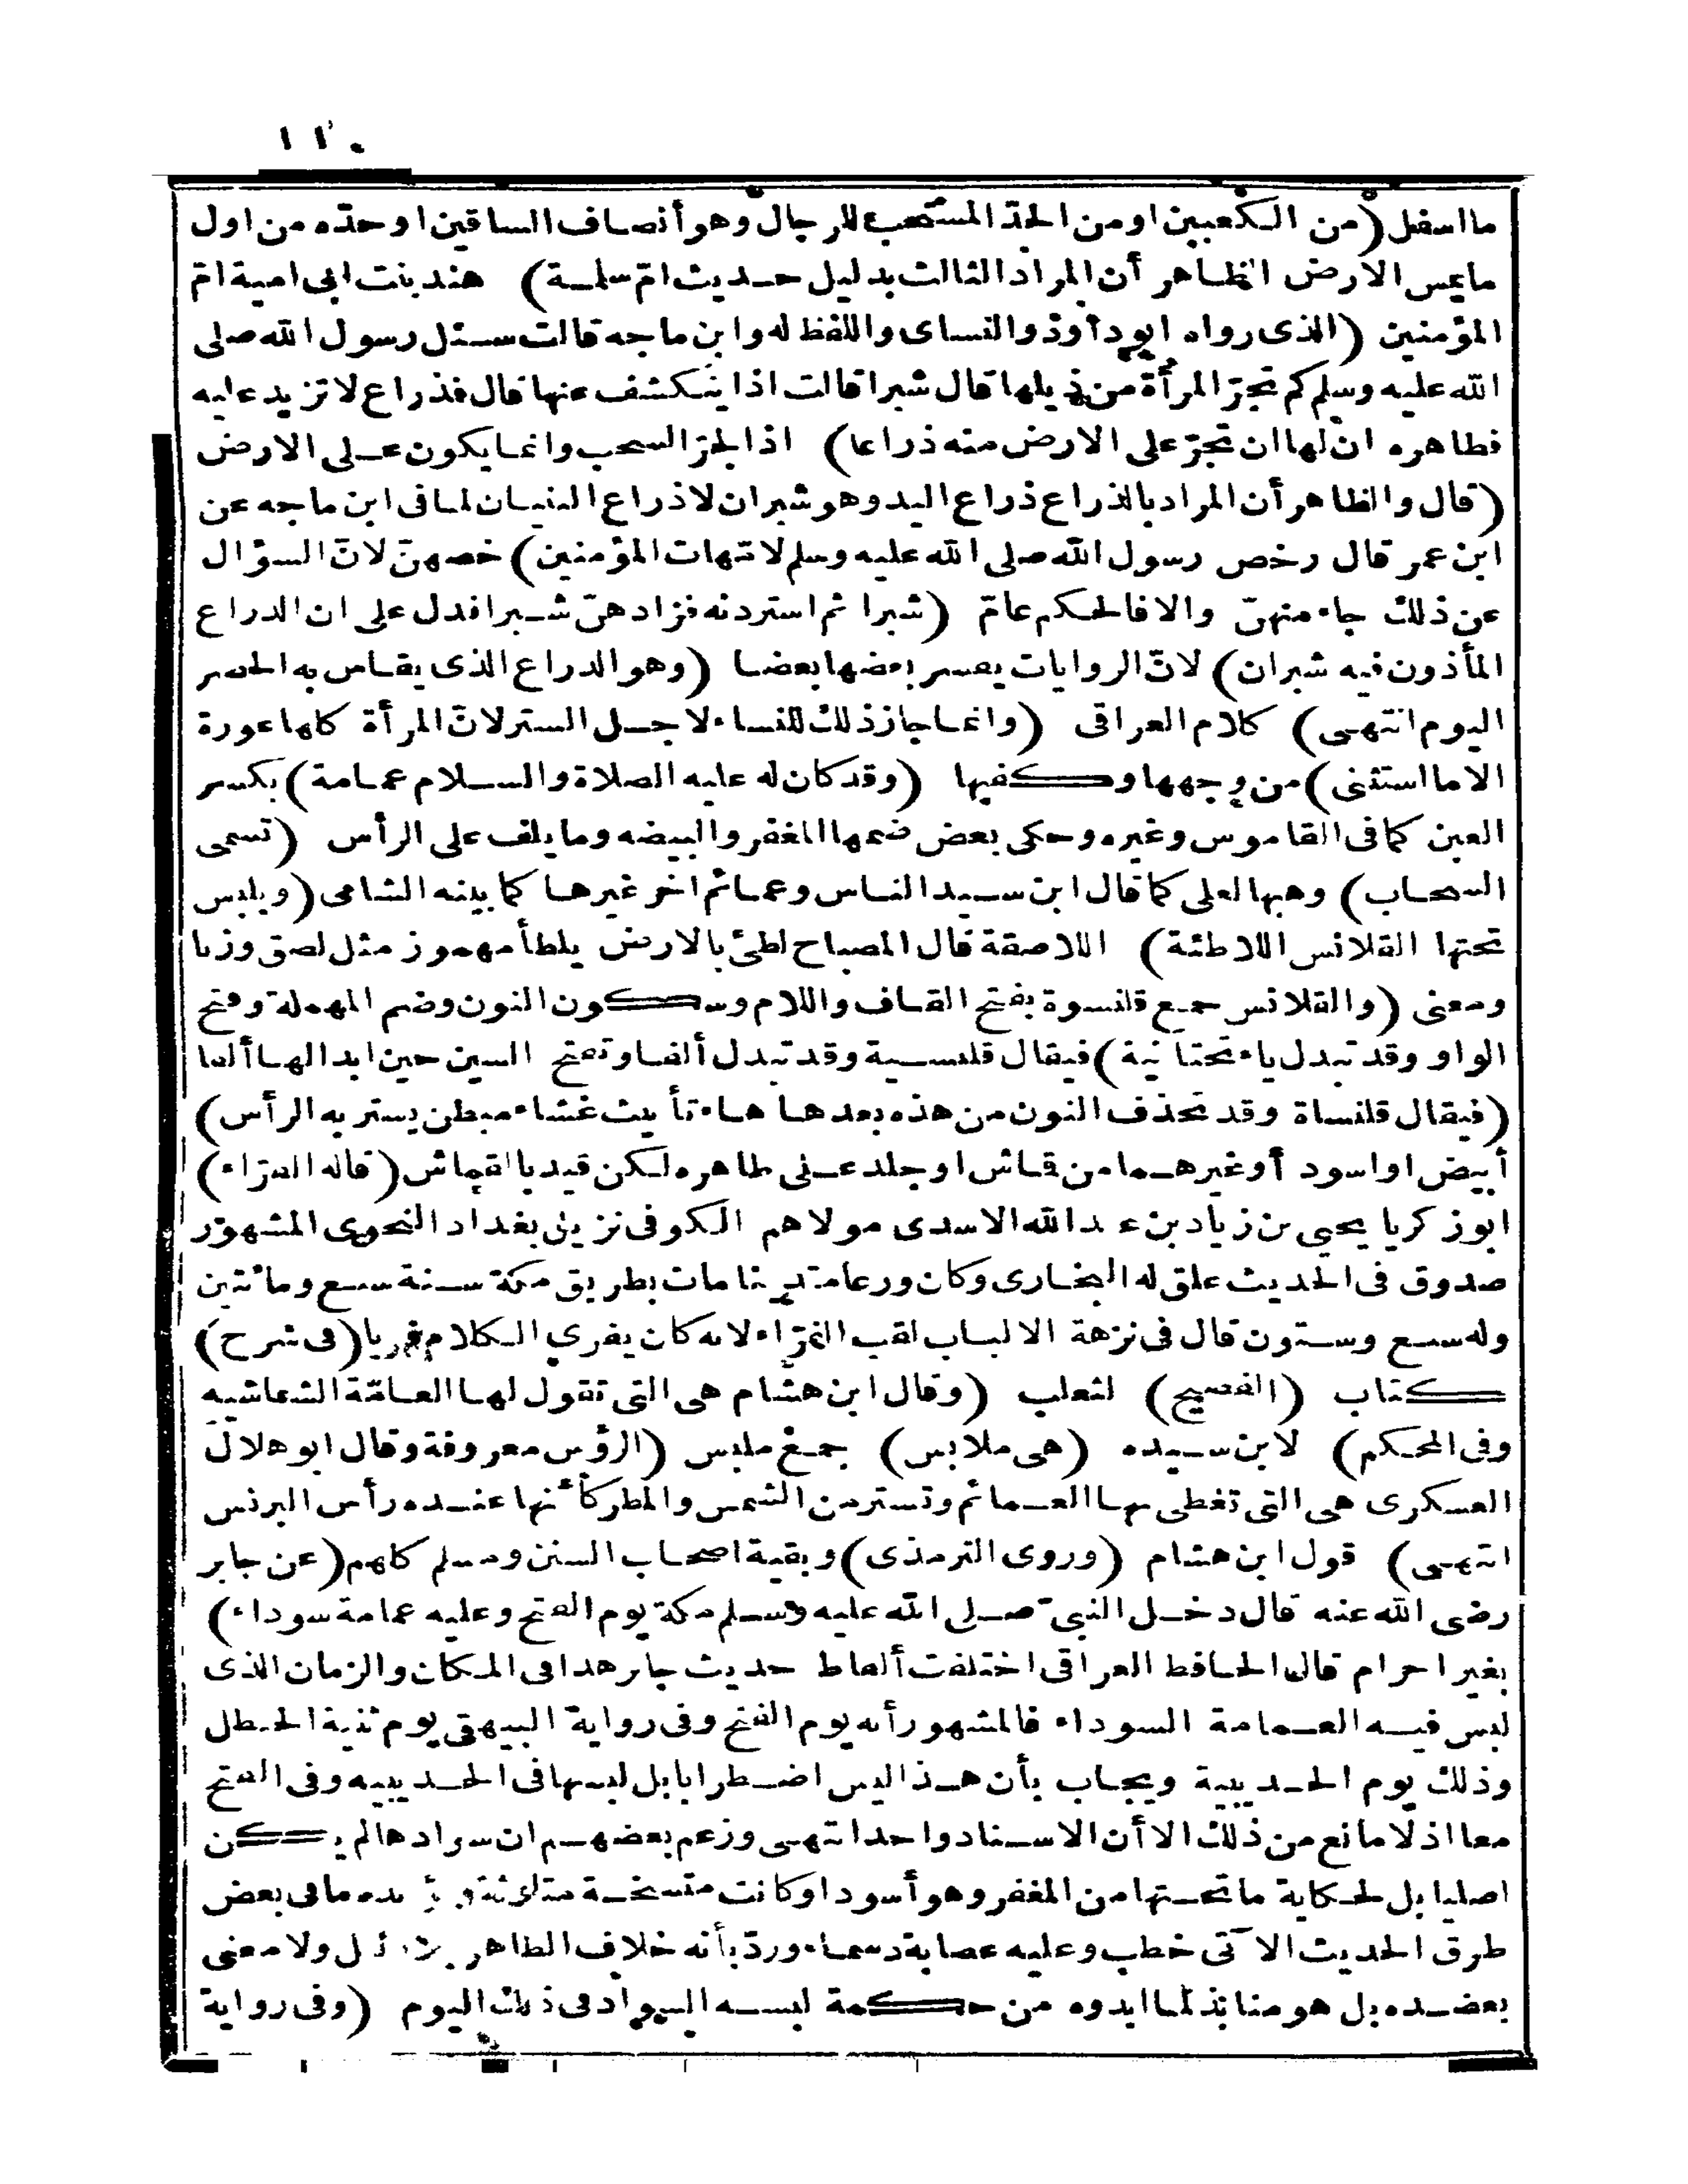 ١١٠
ما اسفل (من الكعبين او من الحدّ المستحب للرجال وهو أنصاف الساقين او حدّه من اول
ما يمس الارض الظاهر أن المراد الثالث بدليل حديث امّ سلمة) هند بنت ابى امية امّ
المؤمنين (الذى رواه ابو داود والنساى واللفظ له وابن ماجه قالت سئل رسول الله صلى
الله عليه وسلم كم تجرّ المرأة من ذيلها قال شبرا قالت اذا ينكشف عنها قال فذراع لا تزيد عليه
فظاهره ان لها ان تجرّ على الارض منه ذراعا) اذ الجرّ السحب وانما يكون على الارض
(قال والظاهر أن المراد بالذراع ذراع اليد وهو شبران لا ذراع البنيان لما فى ابن ماجه عن
ابن عمر قال رخص رسول الله صلى الله عليه وسلم لامّهات المؤمنين) خصهنّ لانّ السؤال
عن ذلك جاء منهنّ والا فالحكم عامّ (شبرا ثم استزدنه فزادهنّ شبرا فدل على ان الذراع
المأذون فيه شبران) لانّ الروايات يفسر بعضها بعضا (وهو الذراع الذى يقاس به الحصر
اليوم انتهى) كلام العراقى (وانما جاز ذلك للنساء لاجل الستر لانّ المرأة كلها عورة
الا ما استثنى) من وجهها وكفيها (وقد كان له عليه الصلاة والسلام عمامة) بكسر
العين كما فى القاموس وغيره وحكى بعض ضمها المغفر والبيضه وما يلف على الرأس (تسمى
السحاب) وهبها لعلى كما قال ابن سيد الناس وعمائم اخر غيرها كما بينه الشامى (ويلبس
تحتها القلانس اللاطئة) اللاصقة قال المصباح لطئ بالارض يلطأ مهموز مثل لصق وزنا
ومعنى (والقلانس جمع قلنسوة بفتح القاف واللام وسكون النون وضم المهملة وفتح
الواو وقد تبدل ياء تحتانية) فيقال قلنسية وقد تبدل ألفا وتفتح السين حين ابدالها ألفا
(فيقال قلنساة وقد تحذف النون من هذه بعدها هاء تأنيث غشاء مبطن يستر به الرأس)
أبيض او اسود أو غيرهما من قماش او جلد على ظاهره لكن قيد بالقماش (قاله الفرّاء)
ابو زكريا يحيى بن زياد بن عبد الله الاسدى مولاهم الكوفى نزيل بغداد النحوى المشهور
صدوق فى الحديث علق له البخارى وكان ورعا متدينا مات بطريق مكة سنة سبع ومائتين
وله سبع وستون قال فى نزهة الالباب لقب الفرّاء لانه كان يفرى الكلام فريا (فى شرح)
كتاب (الفصيح) لثعلب (وقال ابن هشام هى التى تقول لها العامّة الشاشيه
وفى المحكم) لابن سيده (هى ملابس) جمع ملبس (الرؤس معروفة وقال ابو هلال
العسكرى هى التى تغطى بها العمائم وتستر من الشمس والمطر كأنها عنده رأس البرنس
انتهى) قول ابن هشام (وروى الترمذى) وبقية اصحاب السنن ومسلم كلهم (عن جابر
رضى الله عنه قال دخل النبىّ صلى الله عليه وسلم مكة يوم الفتح وعليه عمامة سوداء)
بغير احرام قال الحافظ العراقى اختلفت ألفاظ حديث جابر هذا فى المكان والزمان الذى
لبس فيه العمامة السوداء فالمشهور أنه يوم الفتح وفى رواية البيهقى يوم ثنية الحنظل
وذلك يوم الحديبية ويجاب بأن هذا ليس اضطرابا بل لبسها فى الحديبيه وفى الفتح
معا اذ لا مانع من ذلك الا أن الاسناد واحد انتهى وزعم بعضهم ان سوادها لم يكن
اصليا بل لحكاية ما تحتها من المغفر وهو أسود او كانت متسخة متلوّثة ما فى بعض
طرق الحديث الآتى خطب وعليه عصابة دسماء وردّ بأنه خلاف الظاهر ولا معنى
يعضده بل هو منابذ لما ابدوه من حكمة لبسه السواد فى ذلك اليوم (وفى رواية